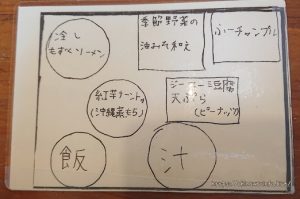 冷し
もずくソーメン
季節野菜の
油みそ和え
ふーチャンプル
紅芋ナントゥ
(沖縄蒸もち)
ジーマーミ豆腐
天ぷら
(ピーナッツ)
飯
汁